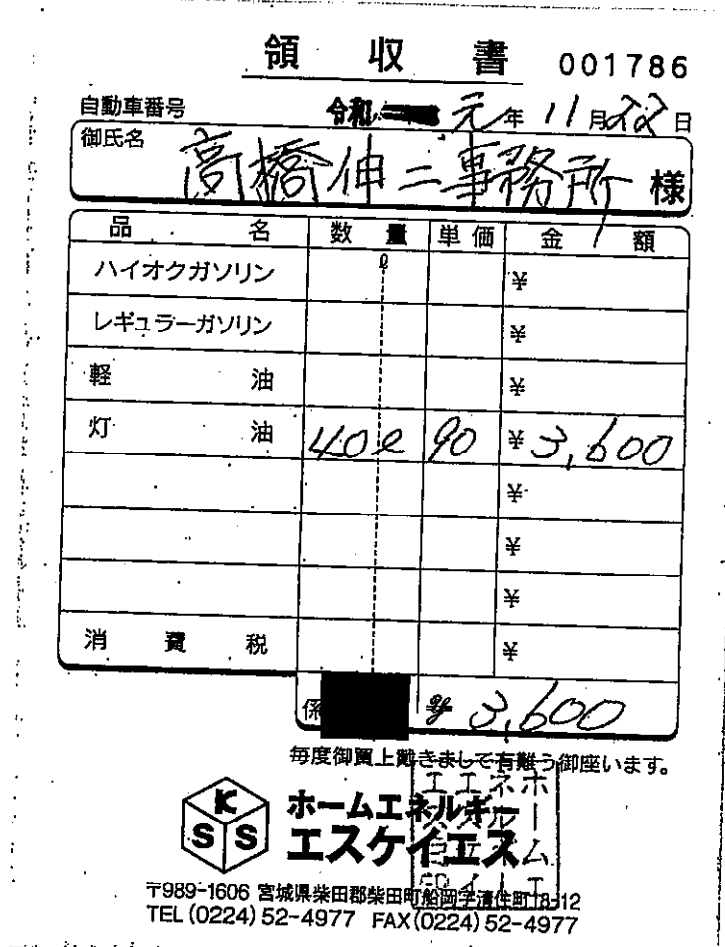 領収書 001786
自動車番号 令和 元年 11月22日
御氏名 高橋伸二事務所 様
品名 数量 単価 金額
ハイオクガソリン ℓ ¥
レギュラーガソリン ¥
軽油 ¥
灯油 40ℓ 90 ¥3,600
¥
¥
¥
消費税 ¥
係 計 3,600
毎度御買上戴きまして有難う御座います。
KSS ホームエネルギー
エスケイエス
〒989-1606 宮城県柴田郡柴田町船岡字清住町18-12
TEL(0224)52-4977 FAX(0224)52-4977